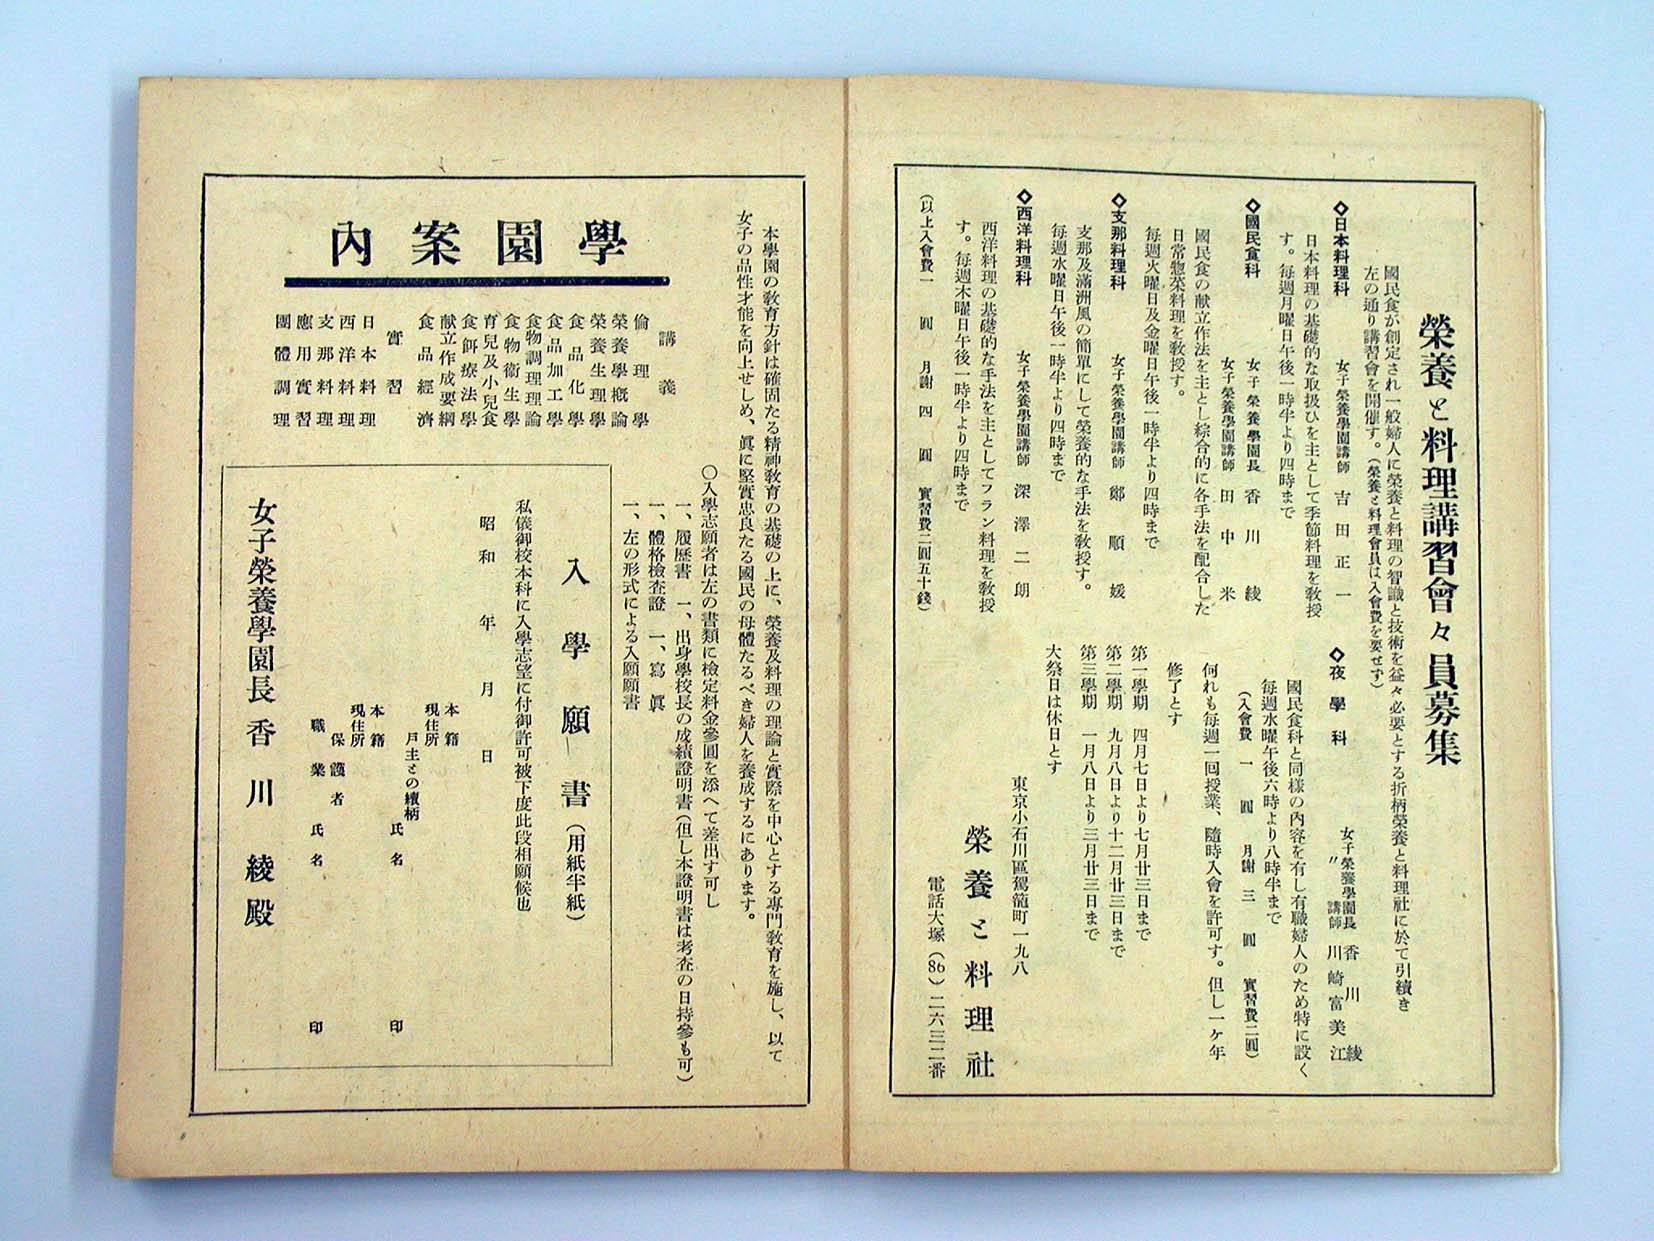 榮養と料理講習會々員募集
國民食が創定され一般婦人に榮養と料理の智識と技術を益々必要とする折柄榮養と料理社に於て引續き
左の通り講習會を開催す。(榮養と料理會員は入會費を要せず)
◇日本料理科 女子榮養學園講師 吉田正一
日本料理の基礎的な取扱ひを主として季節料理を教授
す。毎週月曜日午後一時半より四時まで
◇國民食科 女子榮養學園長 香川綾
女子榮養學園講師 田中米
國民食の献立作法を主とし綜合的に各手法を配合した
日常惣菜料理を教授す。
毎週火曜日及金曜日午後一時半より四時まで
◇支那料理科 女子榮養學園講師 鄭順媛
支那及滿洲風の簡單にして榮養的な手法を教授す。
毎週水曜日午後一時半より四時まで
◇西洋料理科 女子榮養學園講師 深澤二朗
西洋料理の基礎的な手法を主としてフランン料理を教授
す。毎週木曜日午後一時半より四時まで
(以上入會費一圓 月謝四圓 實習費二圓五十錢)
◇夜學科 女子榮養學園長 香川綾
〃 講師 川崎富美江
國民食科と同樣の内容を有し有職婦人のため特に設く
毎週水曜午後六時より八時半まで
(入會費一圓 月謝三圓 實習費二圓)
何れも毎週一回授業、隨時入會を許可す。但し一ヶ年
修了とす
第一學期 四月七日より七月廿三日まで
第二學期 九月八日より十二月廿三日まで
第三學期 一月八日より三月廿三日まで
大祭日は休日とす
東京小石川區駕籠町一九八
榮養と料理社
電話大塚(86)二六三二番
本學園の教育方針は確固たる精神教育の基礎の上に、榮養及料理の理論と實際を中心とする專門教育を施し、以て
女子の品性才能を向上せしめ、眞に堅實忠良たる國民の母體たるべき婦人を養成するにあります。
學園案内
講義
倫理學
榮養學概論
榮養生理學
食品化學
食品加工學
食物調理理論
食物衞生學
育兒及小兒食
食餌療法學
献立作成要綱
食品經濟
實習
日本料理
西洋料理
支那料理
應用實習
團體調理
○入學志願者は左の書類に檢定料金參圓を添へて差出す可し
一、履歷書 一、出身學校長の成績證明書(但し本證明書は考査の日持參も可)
一、體格檢査證 一、寫眞
一、左の形式による入願願書
入學願書(用紙半紙)
私儀御校本科に入學志望に付御許可被下度此段相願候也
昭和 年 月 日
本籍
現住所
戸主との續柄
氏名 印
本籍
現住所
保護者
職業 氏名 印
女子榮養學園長 香川綾殿